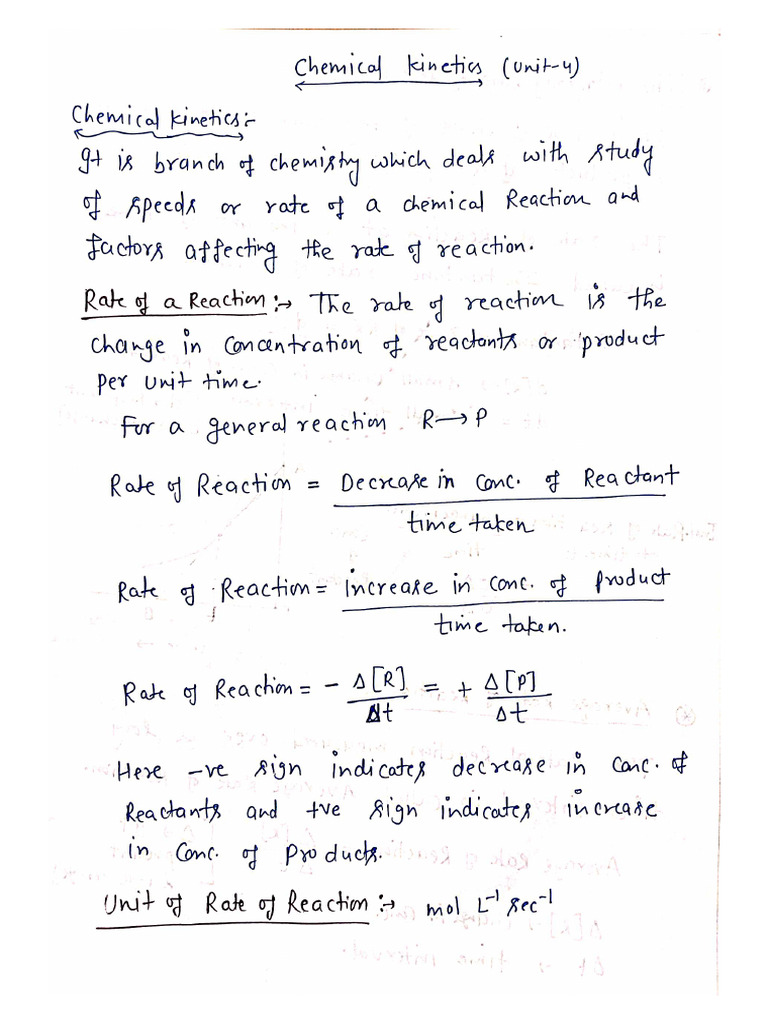 Chemical kinetics (Unit-4)
Chemical kinetics:-
It is branch of chemistry which deals with study
of speeds or rate of a chemical Reaction and
factors affecting the rate of reaction.
Rate of a Reaction:→ The rate of reaction is the
change in concentration of reactants or product
per unit time.
For a general reaction R⟶P
Rate of Reaction = Decrease in conc. of Reactant
time taken
Rate of Reaction = increase in conc. of product
time taken.
Rate of Reaction = - Δ[R] / Δt = + Δ[P] / Δt
Here -ve sign indicates decrease in conc. of
Reactants and +ve sign indicates increase
in conc. of Products.
Unit of Rate of Reaction:→ mol L⁻¹ sec⁻¹